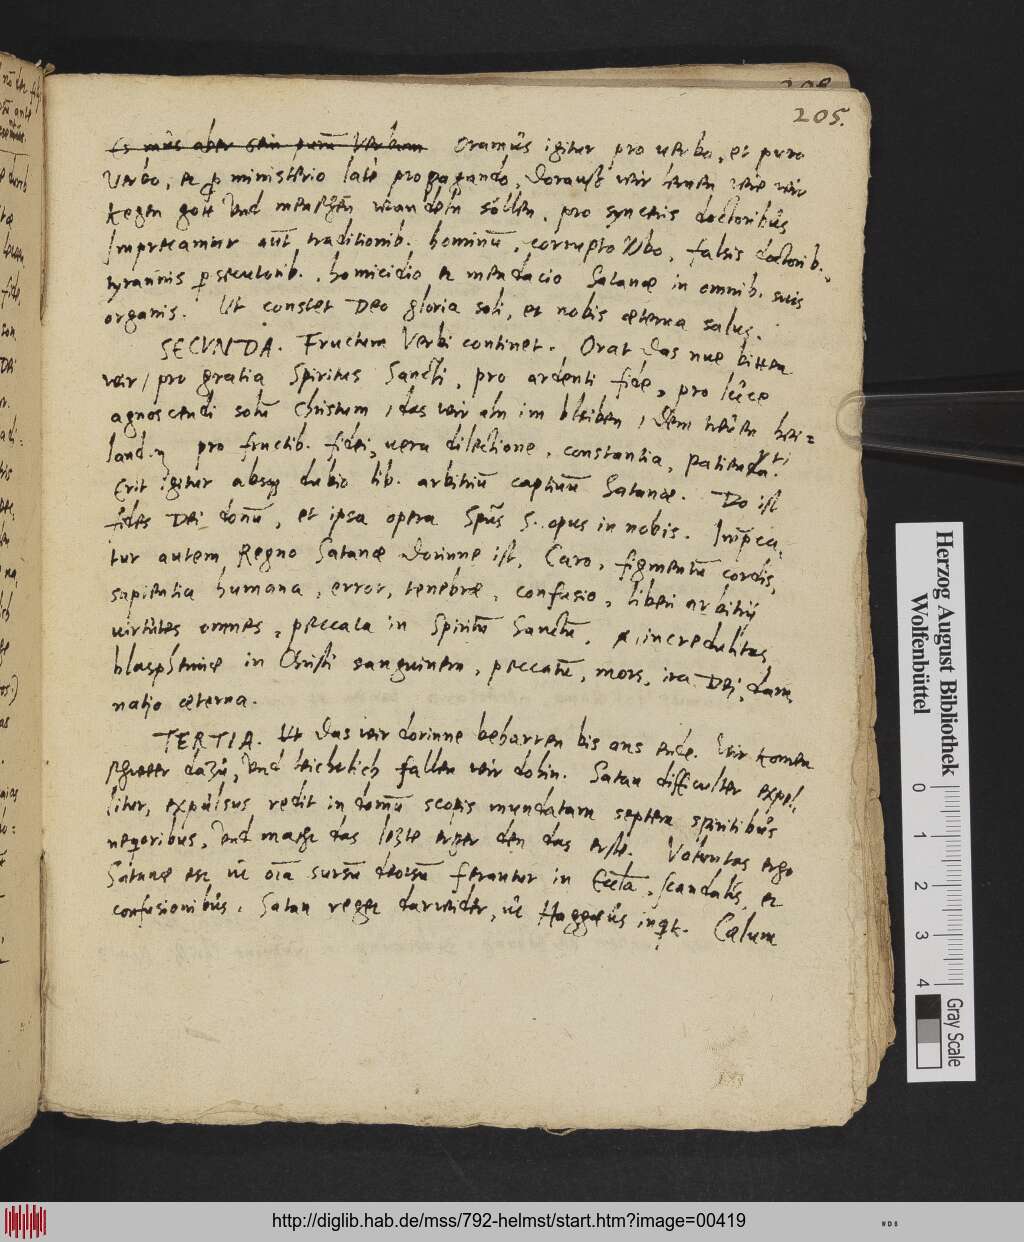 208
205.
Es mus aber sein purū Verbum Oramus igitur pro uerbo, et puro
Verbo, et p ministerio late propagando, Darauß wir lernen wie wir
kegen gott vnd menschen wandeln söllen, pro synceris doctoribus
Imprecamur aut traditionib. hominū, corrupto Vbo, falsis doctorib.
tyrannis psecutorib., homicidio et mendacio Satanæ in omnib. suis
organis. Ut constet Deo gloria soli, et nobis æterna salus.
SECVNDA. Fructum Verbi continet. Orat das nue bitten
wir / pro gratia Spiritus Sancti, pro ardenti fide, pro luce
agnoscendi solū Christum, das wir aln im bleiben, dem treuen hei=
land. pro fructib. fidei, uera dilectione, constantia, patientia.
Erit igitur absq dubio lib. arbitriū captiuū Satanæ. Do ist
fides Dei donū, et ipsa opera Spūs S. opus in nobis. Impreca
tur autem Regno Satanæ dorinne ist, Caro, figmentū cordis,
sapientia humana, error, tenebræ, confusio, liberi arbitrij
uirtutes omnes, peccata in Spiritū Sanctū, incredulitas,
blasphemiæ in Christi sanguinem, peccatū, mors, ira Dei, dam
natio æterna.
TERTIA. Ut das wir dorinne beharren bis ans ende. Wir komen
schwerer dazu, vnd leichtlich fallen wir dohin. Satan difficulter expel
litur, expulsus redit in domū scopis mundatam septem spiritibus
neqoribus, vnd macht das lezte erger den das erste. Voluntas ergo
Satanæ est ut oīa sursū deorsū ferantur in Eccla, scandalis, et
confusionibus. Satan reget darwider, ut Haggæus inqt. Cælum
Herzog August Bibliothek
Wolfenbüttel
0 1 2 3 4
Gray Scale
http://diglib.hab.de/mss/792-helmst/start.htm?image=00419